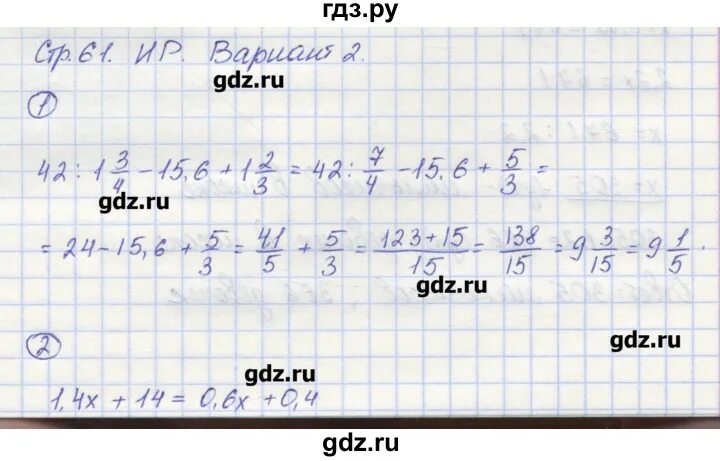 гдз.ру
Стр. 61. ИР. Вариант 2.
gdz.ru
1
42 : 1 3/4 - 15,6 + 1 2/3 = 42 : 7/4 - 15,6 + 5/3 =
gdz.ru
= 24 - 15,6 + 5/3 = 41/5 + 5/3 = (123+15)/15 = 138/15 = 9 3/15 = 9 1/5.
gdz.ru
2
gdz.ru
gdz.ru
1,4x + 14 = 0,6x + 0,4
gdz.ru